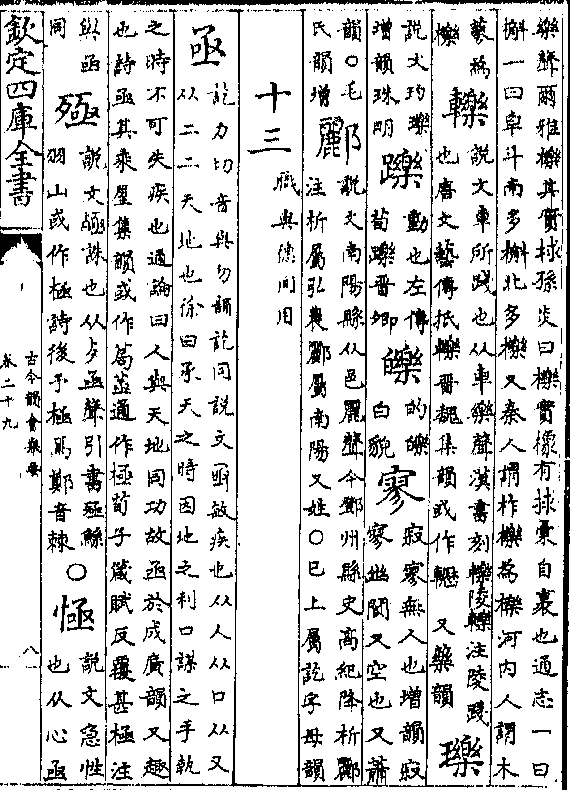 樂聲爾雅櫟其實梂孫炎曰櫟實橡有捄彙自裹也通志一曰
槲一曰皁斗南多槲北多櫟又秦人謂柞櫟為櫟河内人謂木
蓼為櫟 轢 說文車所踐也从車樂聲漢書刻轢陵轢注陵踐
也唐文藝傳抵轢晉魏集韻或作轣 又藥韻 瓅
說文玓瓅增韻珠明 躒 動也左傳荀躒晉卿 皪 的皪白貌 寥 寂寥無人也增韻寂寥幽閴又空也又蕭
韻○毛氏韻增 酈 說文南陽縣从邑麗聲今鄧州縣史高紀降析酈
注析屬弘農酈屬南陽又姓○已上屬訖字母韻
十三 職與德同用
亟 訖力切音與匀韻訖同說文亟敏疾也从人从口从又
从二二天地也徐曰承天之時因地之利口謀之手執
之時不可失疾也通論曰人與天地同功故亟於成廣韻又趣
也詩亟其乘屋集韻或作茍通作極荀子箴賦反覆甚極注
與亟同 殛 說文殛誅也从歺亟聲引書殛鯀
羽山或作極詩後予極焉鄭音棘 ○ 㥛 說文急性也从心亟
欽定四庫全書
古今韻會舉要
卷二十九
八